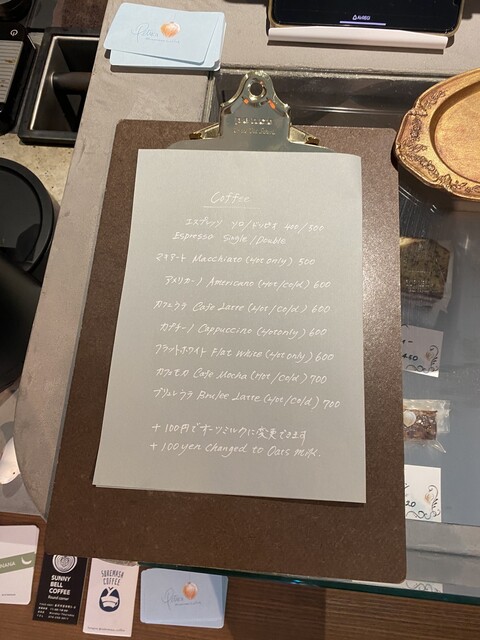 penco
Coffee
エスプレッソ ソロ/ドッピオ 400/500
Espresso Single/Double
マキアート Macchiato (Hot only) 500
アメリカーノ Americano (Hot/Cold) 600
カフェラテ Cafe Latte (Hot/Cold) 600
カプチーノ Cappuccino (Hot only) 600
フラットホワイト Flat White (Hot only) 600
カフェモカ Cafe Mocha (Hot/Cold) 700
ブリュレラテ Brulee Latte (Hot/Cold) 700
+100円でオーツミルクに変更できます
+100yen changed to Oats Milk.
SUNNY
BELL
COFFEE
COFFEE